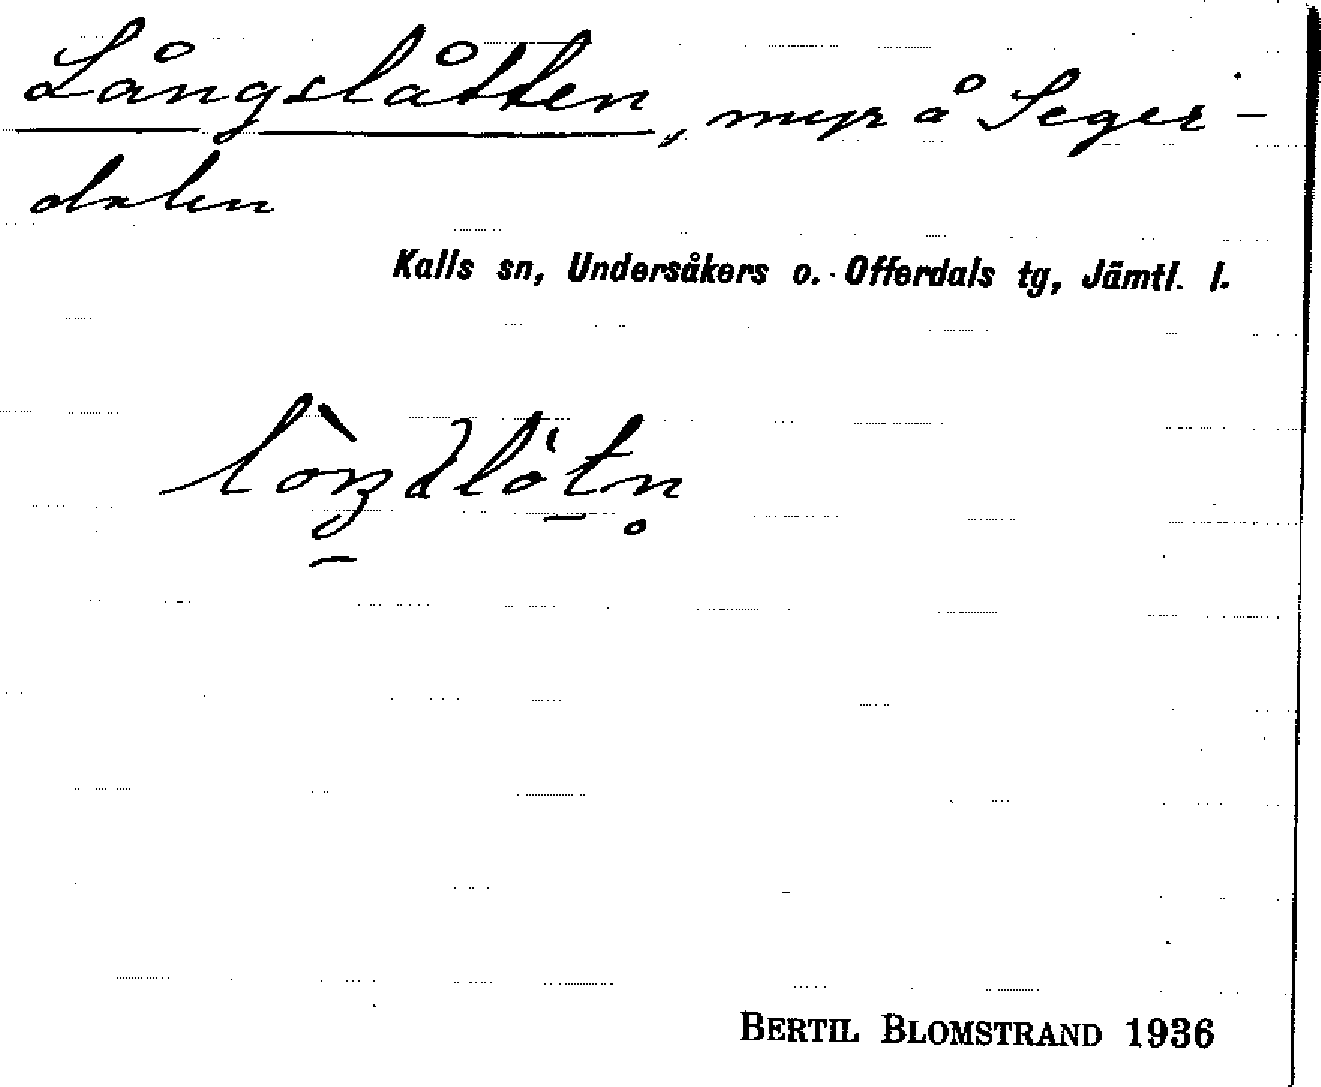 Långslåtten, myr å Seger-
dalen
Kalls sn, Undersåkers o. Offerdals tg, Jämtl. l.
BERTIL BLOMSTRAND 1936